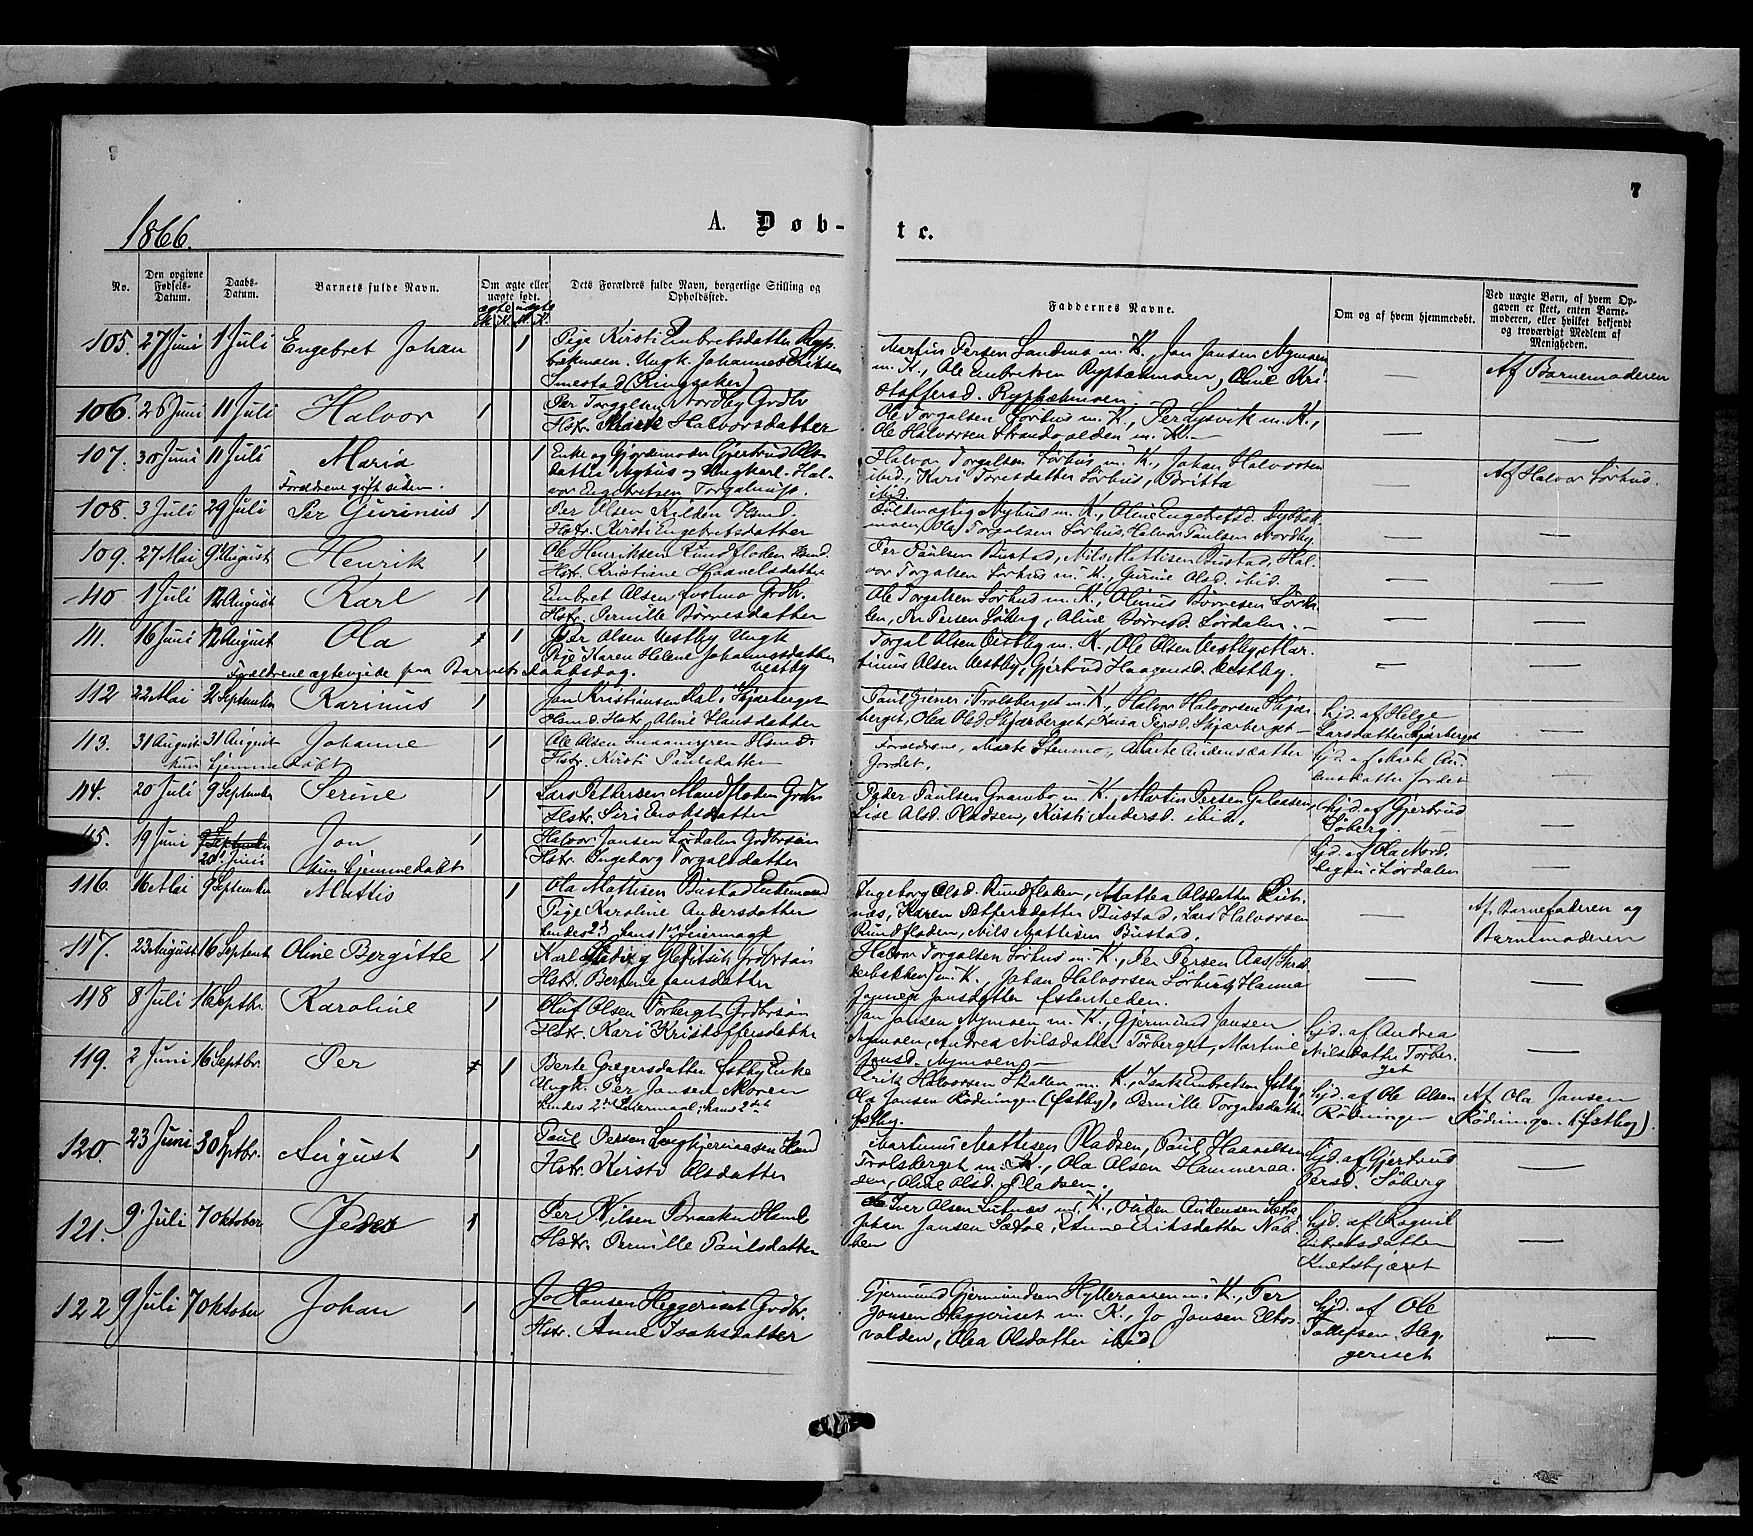 7
1866.
A. Døb-
te.
No.
Den opgivne Fødsels-Datum.
Daabs-Datum.
Barnets fulde Navn.
Om ægte eller uægte født.
ægte uægte
M. K. M. K.
Dets Forældres fulde Navn, borgerlige Stilling og Opholdssted.
Faddernes Navne.
Om og af hvem hjemmedøbt.
Ved uægte Børn, af hvem Opgaven er skeet, enten Barnemoderen, eller hvilket bekjendt og troværdigt Medlem af Menigheden.
105. 27 Juni 1 Juli Engebret Johan 1 Pige Kirsti Enbretsdatter
Ungk. Johannes Eriksen
Smestad (Ringsaker)
Martin Persen Sandnes m. K., Jon Jonsen Nymoen
m. K., Ole Enbretsen
Af Barnemoderen
106. 26 Juni 11 Juli Halvor 1 Per Torgalsen Nordby Grdbr
Hstr. Marte Halvorsdatter
Ole Torgalsen Sørhus m. K., Per Lysvik m. K.,
Ole Halvorsen Strandvolden m. K. — — —
107. 30 Juni 11 Juli Maria 1 Enke og Gjordemoder Gjertrud Ols-
datter Nyhus og Ungkarl. Hal-
vor Engebretsen
Forældrene gift siden.
Halvor Torgalsen Sørhus m. K., Johan Halvorsen
ibid, Kari Toresdatter Sørhus, Britta
ibid. —
Af Halvor Sørhus.
108. 3 Juli 29 Juli Per Gurinius 1 Per Olsen Kilden Hsmd.
Hstr. Kirsti Engebretsdatter
Fuldmægtig Nyhus m. K., Oline Engebretsd.
Ola Torgalsen Sørhus, Halvor Paulsen Nordby. — —
109. 27 Mai 9 August Henrik 1 Ole Henriksen Rundfloden Hsmd.
Hstr. Kristiane Haavelsdatter
Per Paulsen Bustad, Nils Mattisen Bustad, Hal-
vor Torgalsen Sørhus m. K., Gurine Olsd. ibid. — —
110 1 Juli 12 August Karl 1 Enbret Olsen Grdbr.
Hstr. Pernille Børresdatter
Ole Torgalsen Sørhus m. K., Olinus Børresen Lørda-
len, Per Persen Søberg, Oline Børresd. Lørdalen. — —
111. 16 Juni 12 August Ola 1 Per Olsen Vestby Ungk
Pige Karen Helene Johannesdatter
Vestby
Forældrene ægteviede paa Barnets Daabsdag.
Torgal Olsen Østby m. K., Ole Olsen Vestby, Mar-
tinus Olsen Vestby, Gjertrud Haagensd. Vestby. — —
112 22 Mai 2 September Karinus 1 Jon Kristiansen i Skjærberget
Hsmd. Hstr. Oline Hansdatter
Paul Trolsberget m. K., Halvor Halvorsen Skjær-
berget, Olea Olsd Skjærberget, Persd. Skjærberget
hjd. af Helge
Larsdatter Skjærberget —
113. 31 August 31 August Johanne 1 Ole Olsen Hsmd.
Hstr. Kirsti Paulsdatter
kun hjemmedøbt
Forældrene, Marte Stenmo, Marte Audensdatter
Jordet.
hjd. af Marte Au-
densdatter Jordet —
114. 20 Juli 9 September Serine 1 Lars Pettersen Mandfloden Grdbr
Hstr. Siri Enoksdatter
Peder Paulsen Grambo m. K., Martin Persen Galaasen,
Lise Olsd. Pladsen, Kirsti Andersd. ibid.
hjd. af Gjertrud
Søberg. —
115. 19 Juni 9 September
20 Juni Jon 1 Halvor Jansen Lørdalen Grdbrsøn
Hstr. Ingeborg Torgalsdatter
kun hjemmedøbt
hjd. af Ola Nord-
hagen i Lørdalen —
116. 16 Mai 9 September Mattis 1 Ola Mattisen Bustad Enkemand
Pige Karoline Andersdatter
hendes 2d hans 1st Leiermaal
Ingeborg Olsd. Rundfloden, Mattea Olsdatter Lut-
næs, Karen Pettersdatter Bustad, Lars Halvorsen
Rundfloden, Nils Mattisen Bustad. —
Af Barnefaderen og
Barnemoderen
117. 23 August 16 Septemb Oline Bergitte 1 Karl Grdbrsøn
Hstr. Berthe Jansdatter
Halvor Torgalsen Sørhus m. K., Per Persen Aas
m. K., Johan Halvorsen Sørhus, Hanna
Jansdatter Østenheden. — —
118 8 Juli 16 Septbr. Karoline 1 Oluf Olsen Törberget Grdbrsøn
Hstr. Kari Kristoffersdatter
Jon Jonsen Nymoen m. K., Gjermund Jonsen
Nymoen, Andrea Nilsdatter Törberget, Martine
Jonsd. Nymoen. —
hjd. af Andrea
Nilsdatter Törber-
get —
119. 2 Juni 16 Septbr. Per 1 Berte Gregersdatter Østby Enke
Ungk. Per Jansen Moren
hendes 2det Leiermaal, hans 2det
Erik Halvorsen Skallen m. K., Isak Enbretsen Østby,
Ola Jansen Rödningen (Østby), Pernille Torgalsdatter
Østby.
hjd. af Ole Olsen
Rödningen
Af Ola Jansen
Rödningen (Østby).
120. 23 Juni 30 Septbr. August 1 Paul Persen Hsmd
Hstr. Kirsti Olsdatter
Martinus Mattisen Pladsen, Paul Haavelsen
Trolsberget m. K., Ola Olsen Hammeraa-
sen, Oline Olsd. Pladsen.
hjd. af Gjertrud
Persd. Söberg —
121. 9 Juli 7 Oktober Peder 1 Per Nilsen Braaten Hsmd
Hstr. Pernille Paulsdatter
Iver Olsen Lutnæs m. K., Auden Audensen
Johan Jansen Sætre, Anne Eriksdatter Nab-
ben
hjd. af Ragnil
Enbretsdatter
—
122 9 Juli 7 Oktober Johan 1 Jo Hansen Heggeriset Grdbr.
Hstr. Anne Isaksdatter
Gjermund Gjermundsen Hylleraasen m. K., Per
Jonsen Heggeriset m. K., Jo Jonsen Elbs-
volden, Olea Olsdatter ibid.
hjd. af Ole
Tollefsen Heg-
geriset —